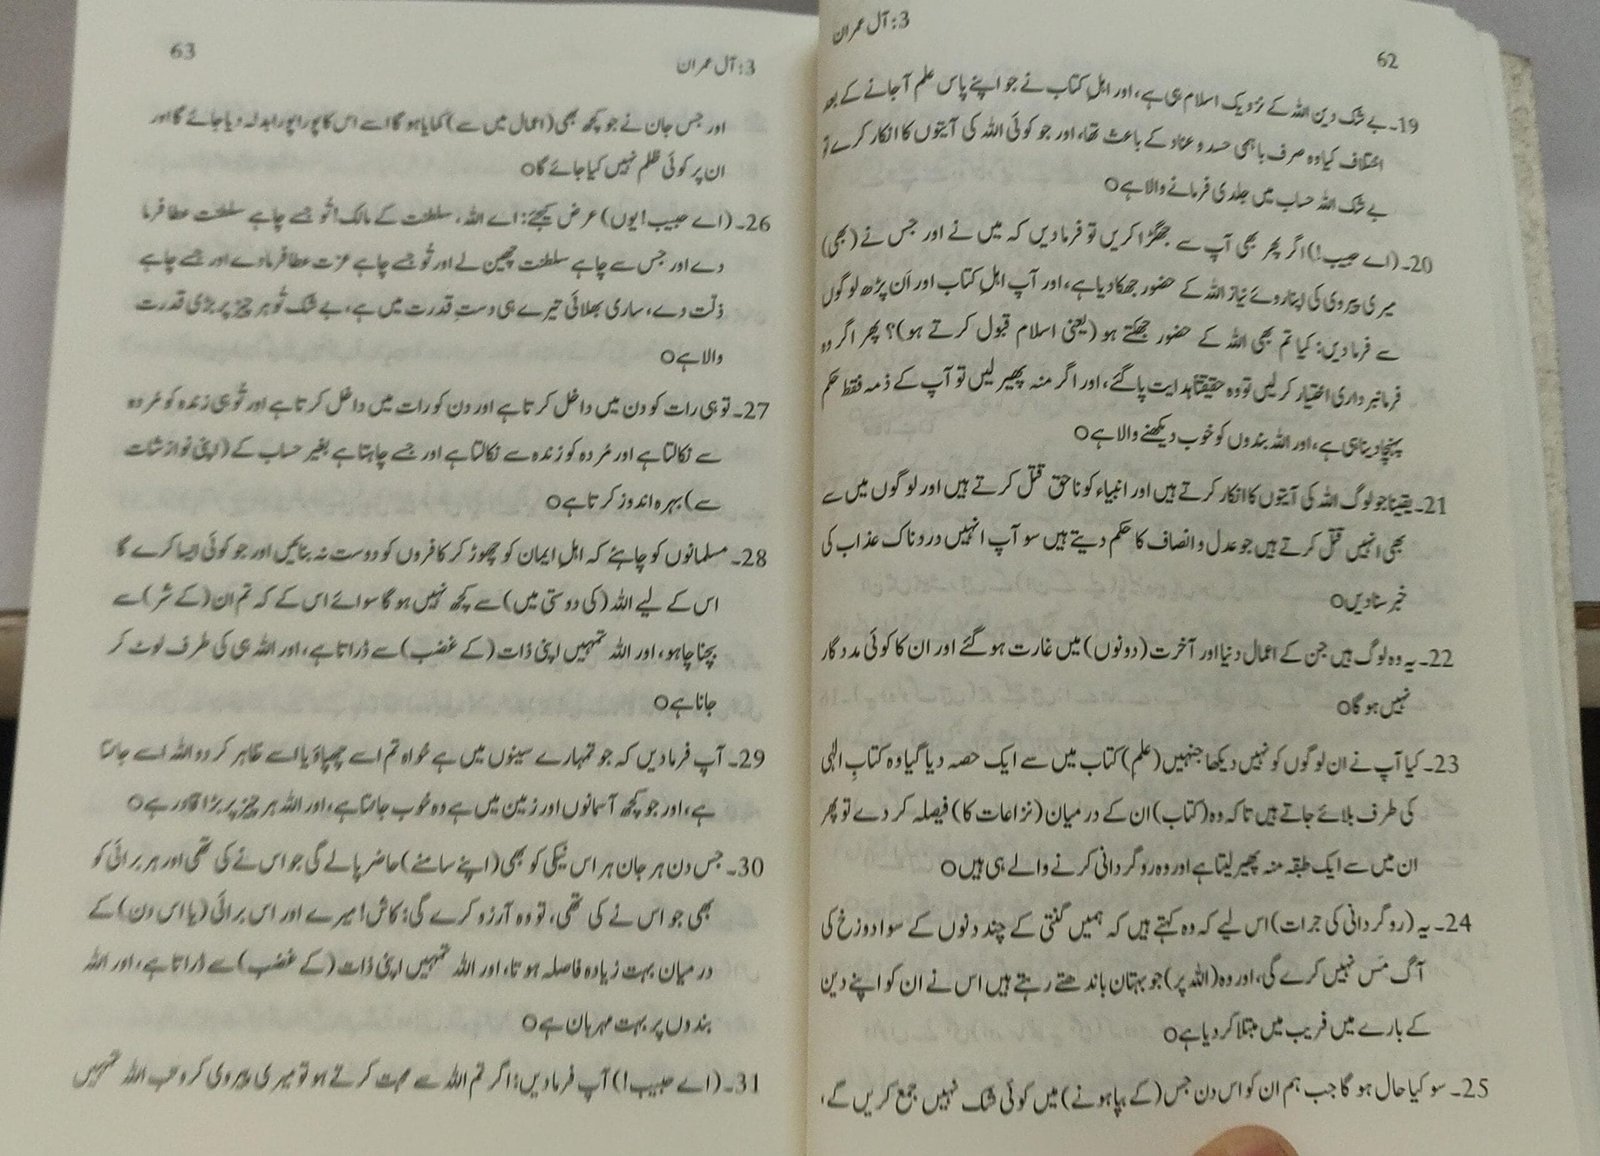 62
3: آل عمران
19۔ بے شک دین اللہ کے نزدیک اسلام ہی ہے، اور اہلِ کتاب نے جو اپنے پاس علم آجانے کے بعد
اختلاف کیا وہ صرف باہمی حسد و عناد کے باعث تھا، اور جو کوئی اللہ کی آیتوں کا انکار کرے تو
بے شک اللہ حساب میں جلدی فرمانے والا ہے○
20۔ (اے حبیب!) اگر پھر بھی آپ سے جھگڑا کریں تو فرما دیں کہ میں نے اور جس نے (بھی)
میری پیروی کی اپنا روئے نیاز اللہ کے حضور جھکا دیا ہے، اور آپ اہلِ کتاب اور اَن پڑھ لوگوں
سے فرما دیں: کیا تم بھی اللہ کے حضور جھکتے ہو (یعنی اسلام قبول کرتے ہو)؟ پھر اگر وہ
فرمانبرداری اختیار کر لیں تو وہ حقیقتاً ہدایت پا گئے، اور اگر منہ پھیر لیں تو آپ کے ذمہ فقط حکم
پہنچا دینا ہی ہے، اور اللہ بندوں کو خوب دیکھنے والا ہے○
21۔ یقیناً جو لوگ اللہ کی آیتوں کا انکار کرتے ہیں اور انبیاء کو ناحق قتل کرتے ہیں اور لوگوں میں سے
بھی انہیں قتل کرتے ہیں جو عدل و انصاف کا حکم دیتے ہیں سو آپ انہیں دردناک عذاب کی
خبر سنا دیں○
22۔ یہ وہ لوگ ہیں جن کے اعمال دنیا اور آخرت (دونوں) میں غارت ہو گئے اور ان کا کوئی مددگار
نہیں ہو گا○
23۔ کیا آپ نے ان لوگوں کو نہیں دیکھا جنہیں (علم) کتاب میں سے ایک حصہ دیا گیا وہ کتابِ الٰہی
کی طرف بلائے جاتے ہیں تاکہ وہ (کتاب) ان کے درمیان (نزاعات کا) فیصلہ کر دے تو پھر
ان میں سے ایک طبقہ منہ پھیر لیتا ہے اور وہ روگردانی کرنے والے ہی ہیں○
24۔ یہ (روگردانی کی جرات) اس لیے کہ وہ کہتے ہیں کہ ہمیں گنتی کے چند دنوں کے سوا دوزخ کی
آگ مَس نہیں کرے گی، اور وہ (اللہ پر) جو بہتان باندھتے رہتے ہیں اس نے ان کو اپنے دین
کے بارے میں فریب میں مبتلا کر دیا ہے○
25۔ سو کیا حال ہو گا جب ہم ان کو اس دن جس (کے بپا ہونے) میں کوئی شک نہیں جمع کریں گے،
63
3: آل عمران
اور جس جان نے جو کچھ بھی (اعمال میں سے) کمایا ہو گا اسے اس کا پورا پورا بدلہ دیا جائے گا اور
ان پر کوئی ظلم نہیں کیا جائے گا○
26۔ (اے حبیب! یوں) عرض کیجئے: اے اللہ، سلطنت کے مالک! تُو جسے چاہے سلطنت عطا فرما
دے اور جس سے چاہے سلطنت چھین لے اور تُو جسے چاہے عزت عطا فرما دے اور جسے چاہے
ذلّت دے، ساری بھلائی تیرے ہی دستِ قدرت میں ہے، بے شک تُو ہر چیز پر بڑی قدرت
والا ہے○
27۔ تو ہی رات کو دن میں داخل کرتا ہے اور دن کو رات میں داخل کرتا ہے اور تُو ہی زندہ کو مُردہ
سے نکالتا ہے اور مُردہ کو زندہ سے نکالتا ہے اور جسے چاہتا ہے بغیر حساب کے (اپنی نوازشات
سے) بہرہ اندوز کرتا ہے○
28۔ مسلمانوں کو چاہئے کہ اہلِ ایمان کو چھوڑ کر کافروں کو دوست نہ بنائیں اور جو کوئی ایسا کرے گا
اس کے لیے اللہ (کی دوستی میں) سے کچھ نہیں ہو گا سوائے اس کے کہ تم ان (کے شر) سے
بچنا چاہو، اور اللہ تمہیں اپنی ذات (کے غضب) سے ڈراتا ہے، اور اللہ ہی کی طرف لوٹ کر
جانا ہے○
29۔ آپ فرما دیں کہ جو تمہارے سینوں میں ہے خواہ تم اسے چھپاؤ یا اسے ظاہر کر دو اللہ اسے جانتا
ہے، اور جو کچھ آسمانوں اور زمین میں ہے وہ خوب جانتا ہے، اور اللہ ہر چیز پر بڑا قادر ہے○
30۔ جس دن ہر جان ہر اس نیکی کو بھی (اپنے سامنے) حاضر پا لے گی جو اس نے کی تھی اور ہر برائی کو
بھی جو اس نے کی تھی، تو وہ آرزو کرے گی: کاش! میرے اور اس برائی (یا اس دن) کے
درمیان بہت زیادہ فاصلہ ہوتا، اور اللہ تمہیں اپنی ذات (کے غضب) سے ڈراتا ہے، اور اللہ
بندوں پر بہت مہربان ہے○
31۔ (اے حبیب!) آپ فرما دیں: اگر تم اللہ سے محبت کرتے ہو تو میری پیروی کرو تب اللہ تمہیں